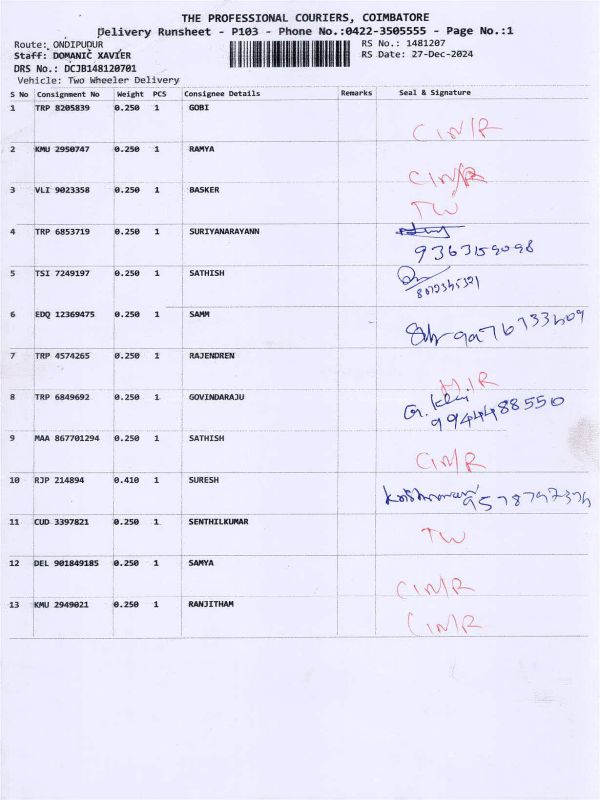 THE PROFESSIONAL COURIERS, COIMBATORE
Delivery Runsheet - P103 - Phone No.:0422-3505555 - Page No.:1
Route: ONDIPUDUR
RS No.: 1481207
Staff: DOMANIC XAVIER
RS Date: 27-Dec-2024
DRS No.: DCJB148120701
Vehicle: Two Wheeler Delivery
S No Consignment No Weight PCS Consignee Details Remarks Seal & Signature
1 TRP 8205839 0.250 1 GOBI
C|N/R
2 KMU 2950747 0.250 1 RAMYA
C|N/R
3 VLI 9023358 0.250 1 BASKER
TW
4 TRP 6853719 0.250 1 SURIYANARAYANN
9363159098
5 TSI 7249197 0.250 1 SATHISH
6 EDQ 12369475 0.250 1 SAMM
7 TRP 4574265 0.250 1 RAJENDREN
8 TRP 6849692 0.250 1 GOVINDARAJU
9944488550
9 MAA 867701294 0.250 1 SATHISH
C|N/R
10 RJP 214894 0.410 1 SURESH
11 CUD 3397821 0.250 1 SENTHILKUMAR
TW
12 DEL 901849185 0.250 1 SAMYA
C|N/R
13 KMU 2949021 0.250 1 RANJITHAM
C|N/R